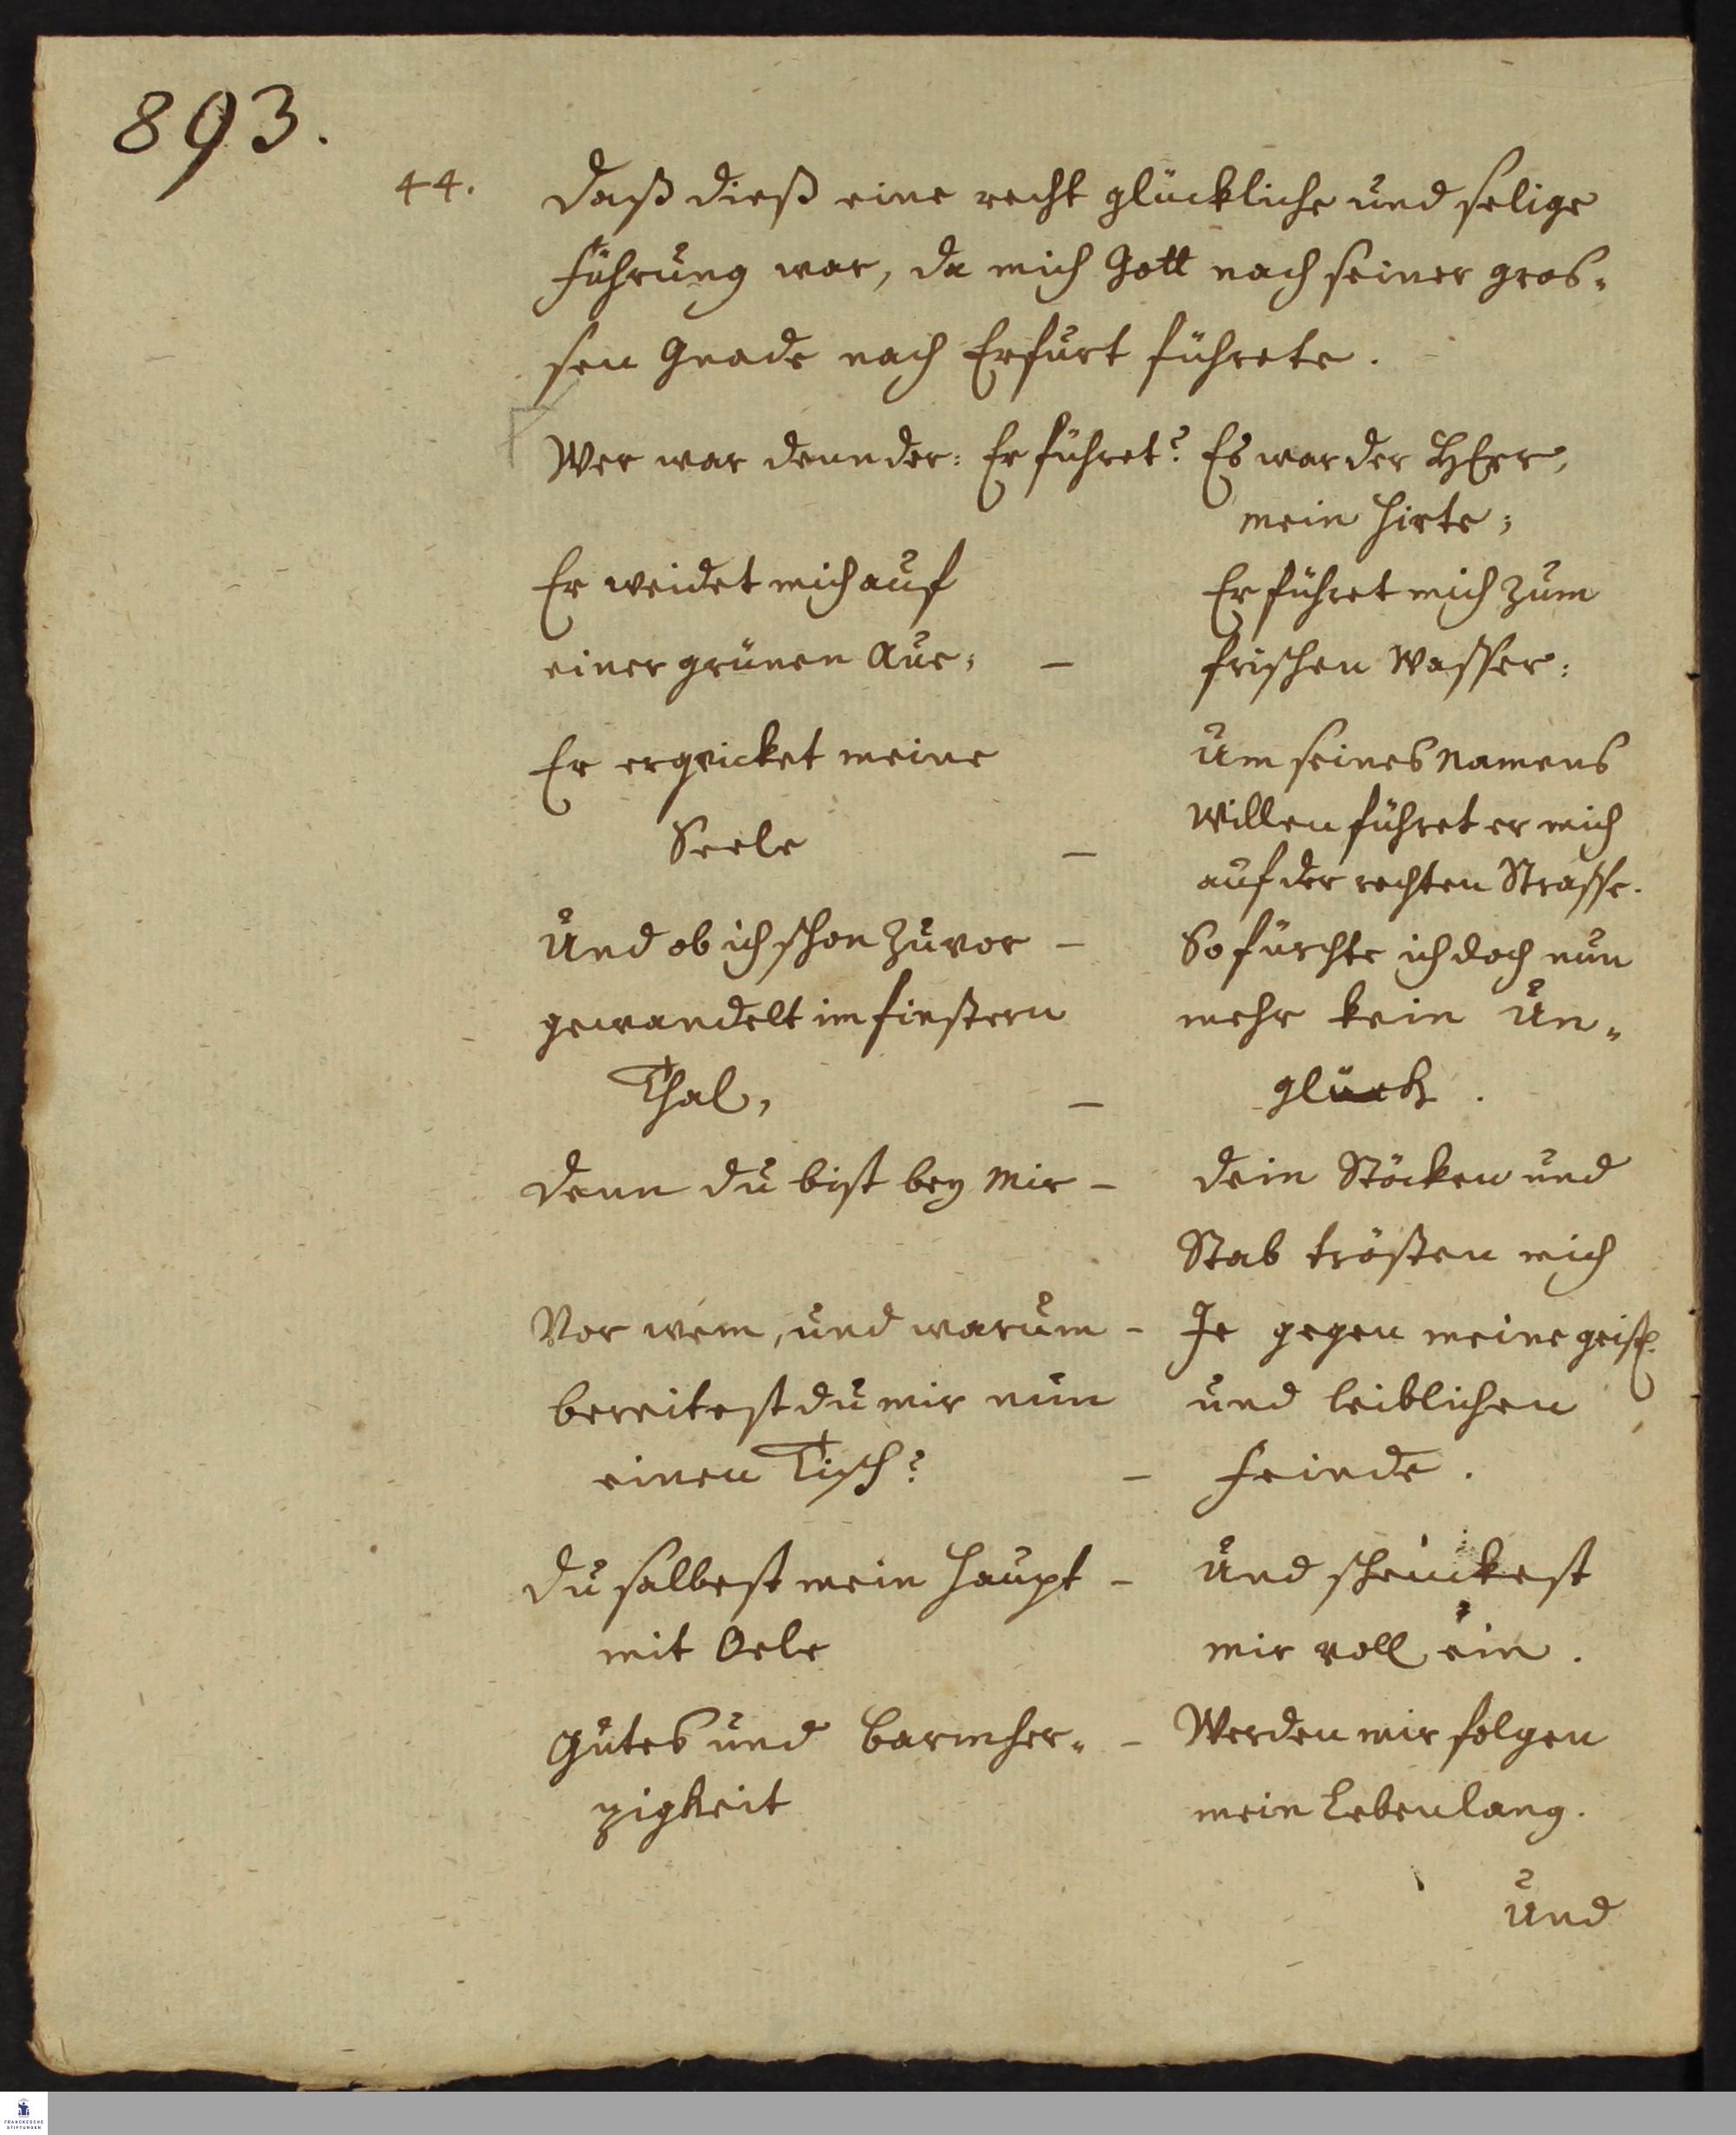 893.
44. Daß dieß eine recht glückliche und selige
Führung war, da mich Gott nach seiner gros-
sen Gnade nach Erfurt führete.
Wer war denn der: Er führet? Es war der HErr,
mein Hirte;
Er weidet mich auf Er führet mich zum
einer grünen Aue; – frischen Wasser:
Er erqvicket meine Um seines Namens
Seele – Willen führet er mich
auf der rechten Strasse.
Und ob ich schon zuvor – So fürchte ich doch nun
gewandelt im finstern mehr kein Un-
Thal, – glück.
Denn du bist bey mir – Dein Stöcken und
Stab trösten mich
Vor wem, und warum – Je gegen meine geistl.
bereitest du mir nun und leiblichen
einen Tisch? – Feinde.
Du salbest mein Haupt – Und schenckest
mit Oele mir voll ein.
Gutes und Barmher- – Werden mir folgen
zigkeit mein Lebenlang.
Und
FRANCKESCHE
STIFTUNGEN